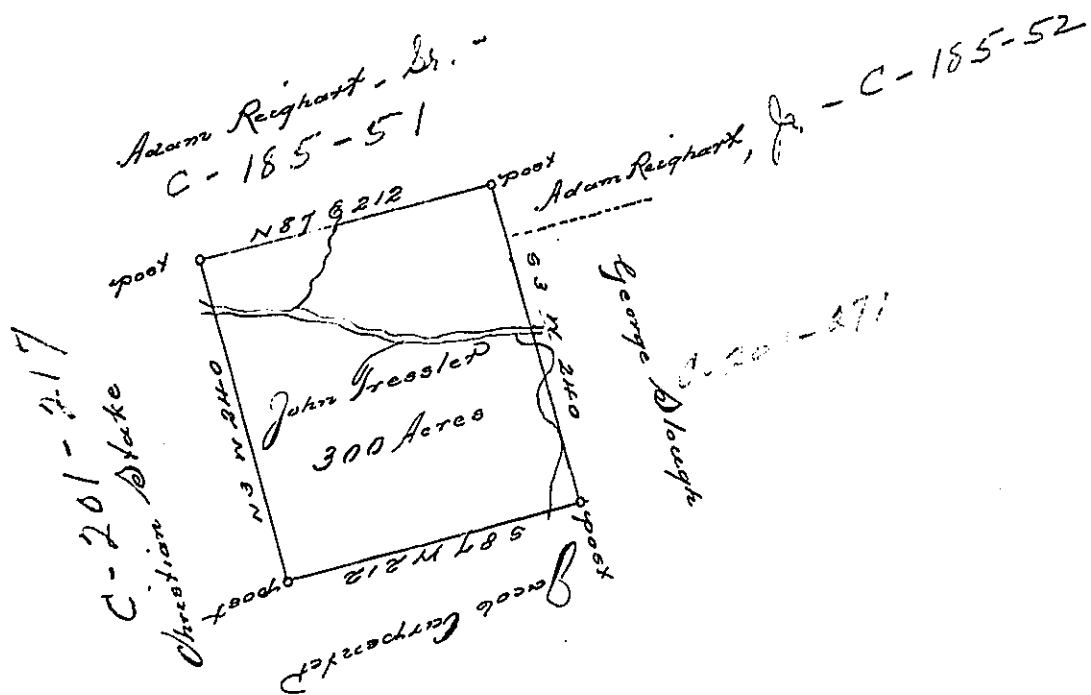 Adam Reighart, Sr. -
C - 185 - 51
Adam Reighart, Jr. - C - 185-52
post
post
N 87 E 212
S 3 W 240
George Slough
C-201-271
C-201-217
Christian Stake
N 3 W 240
John Tressler
300 Acres
S 87 W 212
post
post
Jacob Carpenter